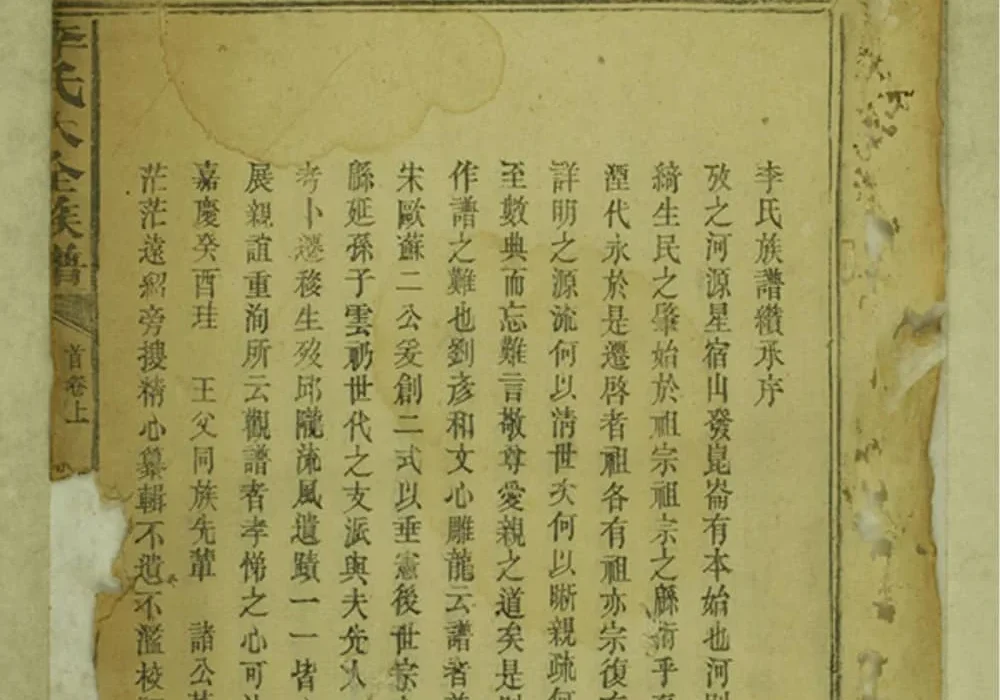 李氏族譜纘承序
攷之河源星宿山發崑崙有本始也河
綺生民之肇始於祖宗祖宗之緜衍乎
湮代永於是遷啓者祖各有祖亦宗復
詳明之源流何以清世次何以晰親疏何
至數典而忘難言敬尊愛親之道矣是
作譜之難也劉彥和文心雕龍云譜者普
朱歐蘇二公爰創二式以垂憲後世宗
緜延孫子雲礽世代之支派與夫先人
考卜遷移生歿邱隴流風遺蹟一一皆
展親誼重洵所云觀譜者孝悌之心可
嘉慶癸酉珪 王父同族先輩 諸公
茫茫遠紹旁搜精心纂輯不遺不濫校
李氏大全族譜
首卷上